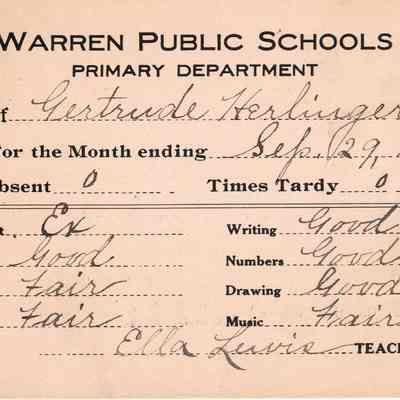 WARREN PUBLIC SCHOOLS
PRIMARY DEPARTMENT
of Gertrude Herlinger
for the Month ending Sep. 29,
bsent 0 Times Tardy 0
t. Ex Writing Good
Good Numbers Good
Fair Drawing Good
Fair Music Fair
Ella Lewis TEAC